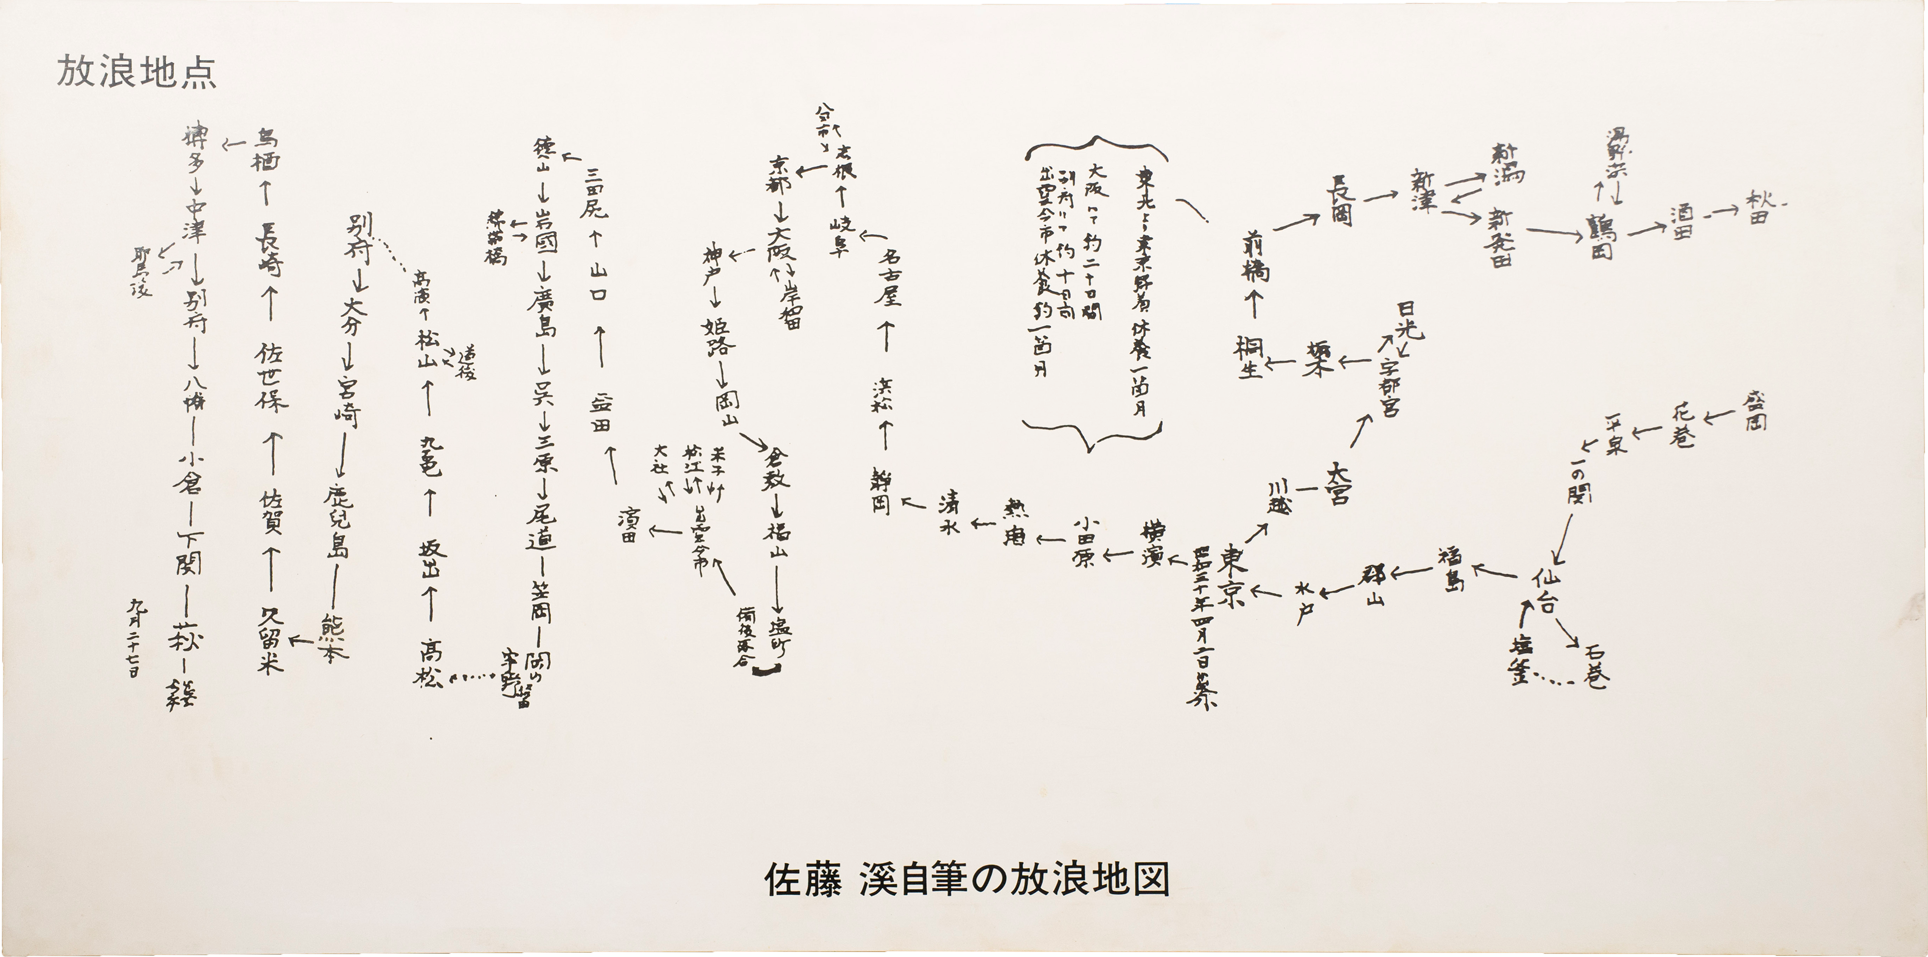 放浪地点
博多
中津
耶馬渓
別府
八幡
小倉
下関
萩
九月二十七日
鳥栖
長崎
佐世保
佐賀
久留米
別府
大分
宮崎
鹿兒島
熊本
高濱
松山
道後
丸亀
坂出
高松
徳山
岩國
錦帯橋
廣島
呉
三原
尾道
笠岡
岡山
宇野
三田尻
山口
益田
濱田
大社
松江
米子
出雲今市
備後落合
塩町
福山
倉敷
岡山
姫路
神戸
大阪
岸和田
京都
岐阜
名古屋
浜松
静岡
清水
熱海
小田原
横濱
東北より東京歸着休養一箇月
大阪にて約二十日間
別府にて約十日間
出雲今市休養約一箇月
東京
昭和三十年四月二日出発
川越
大宮
宇都宮
日光
栃木
桐生
前橋
長岡
新津
新潟
新発田
鶴岡
湯野浜
酒田
秋田
盛岡
花巻
平泉
一の関
仙台
石巻
塩釜
福島
郡山
水戸
佐藤 溪自筆の放浪地図